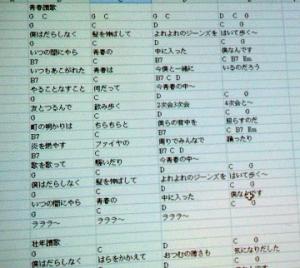 青春讃歌
G C G C D C G
G C D C G
僕はだらしなく 髪を伸ばして よれよれのジーンズを はいて歩く〜
G C D G
いつの間にやら 青春の 中に入った 僕なんです
B7 C D B7 Em
いつもあこがれた 青春は 今僕と一緒に いるのだろう
B7 C B7 C D
やることなすこと 何だって 今青春の中〜
G C D C G
友とつるんで 飲み歩く 2次会3次会 4次会と〜
G C D G
町の明かりは ちらちらと 僕らの背中を 照らすのだ
B7 C D B7 Em
炎を燃やす ファイヤの 周りでみんなで 踊ったり
B7 C B7 C D
歌を歌って 騒いだり 今青春の中〜
G C D C G
僕はだらしなく 髪を伸ばして よれよれのジーンズを はいて歩く〜
G C D G
いつの間にやら 青春の 中に入った 僕なんです
G C D G
ラララ〜 ラララ〜 ラララ〜
壮年讃歌
G C D C G
僕はだらしなく はらをかかえて おつむの薄さも 気になりだした